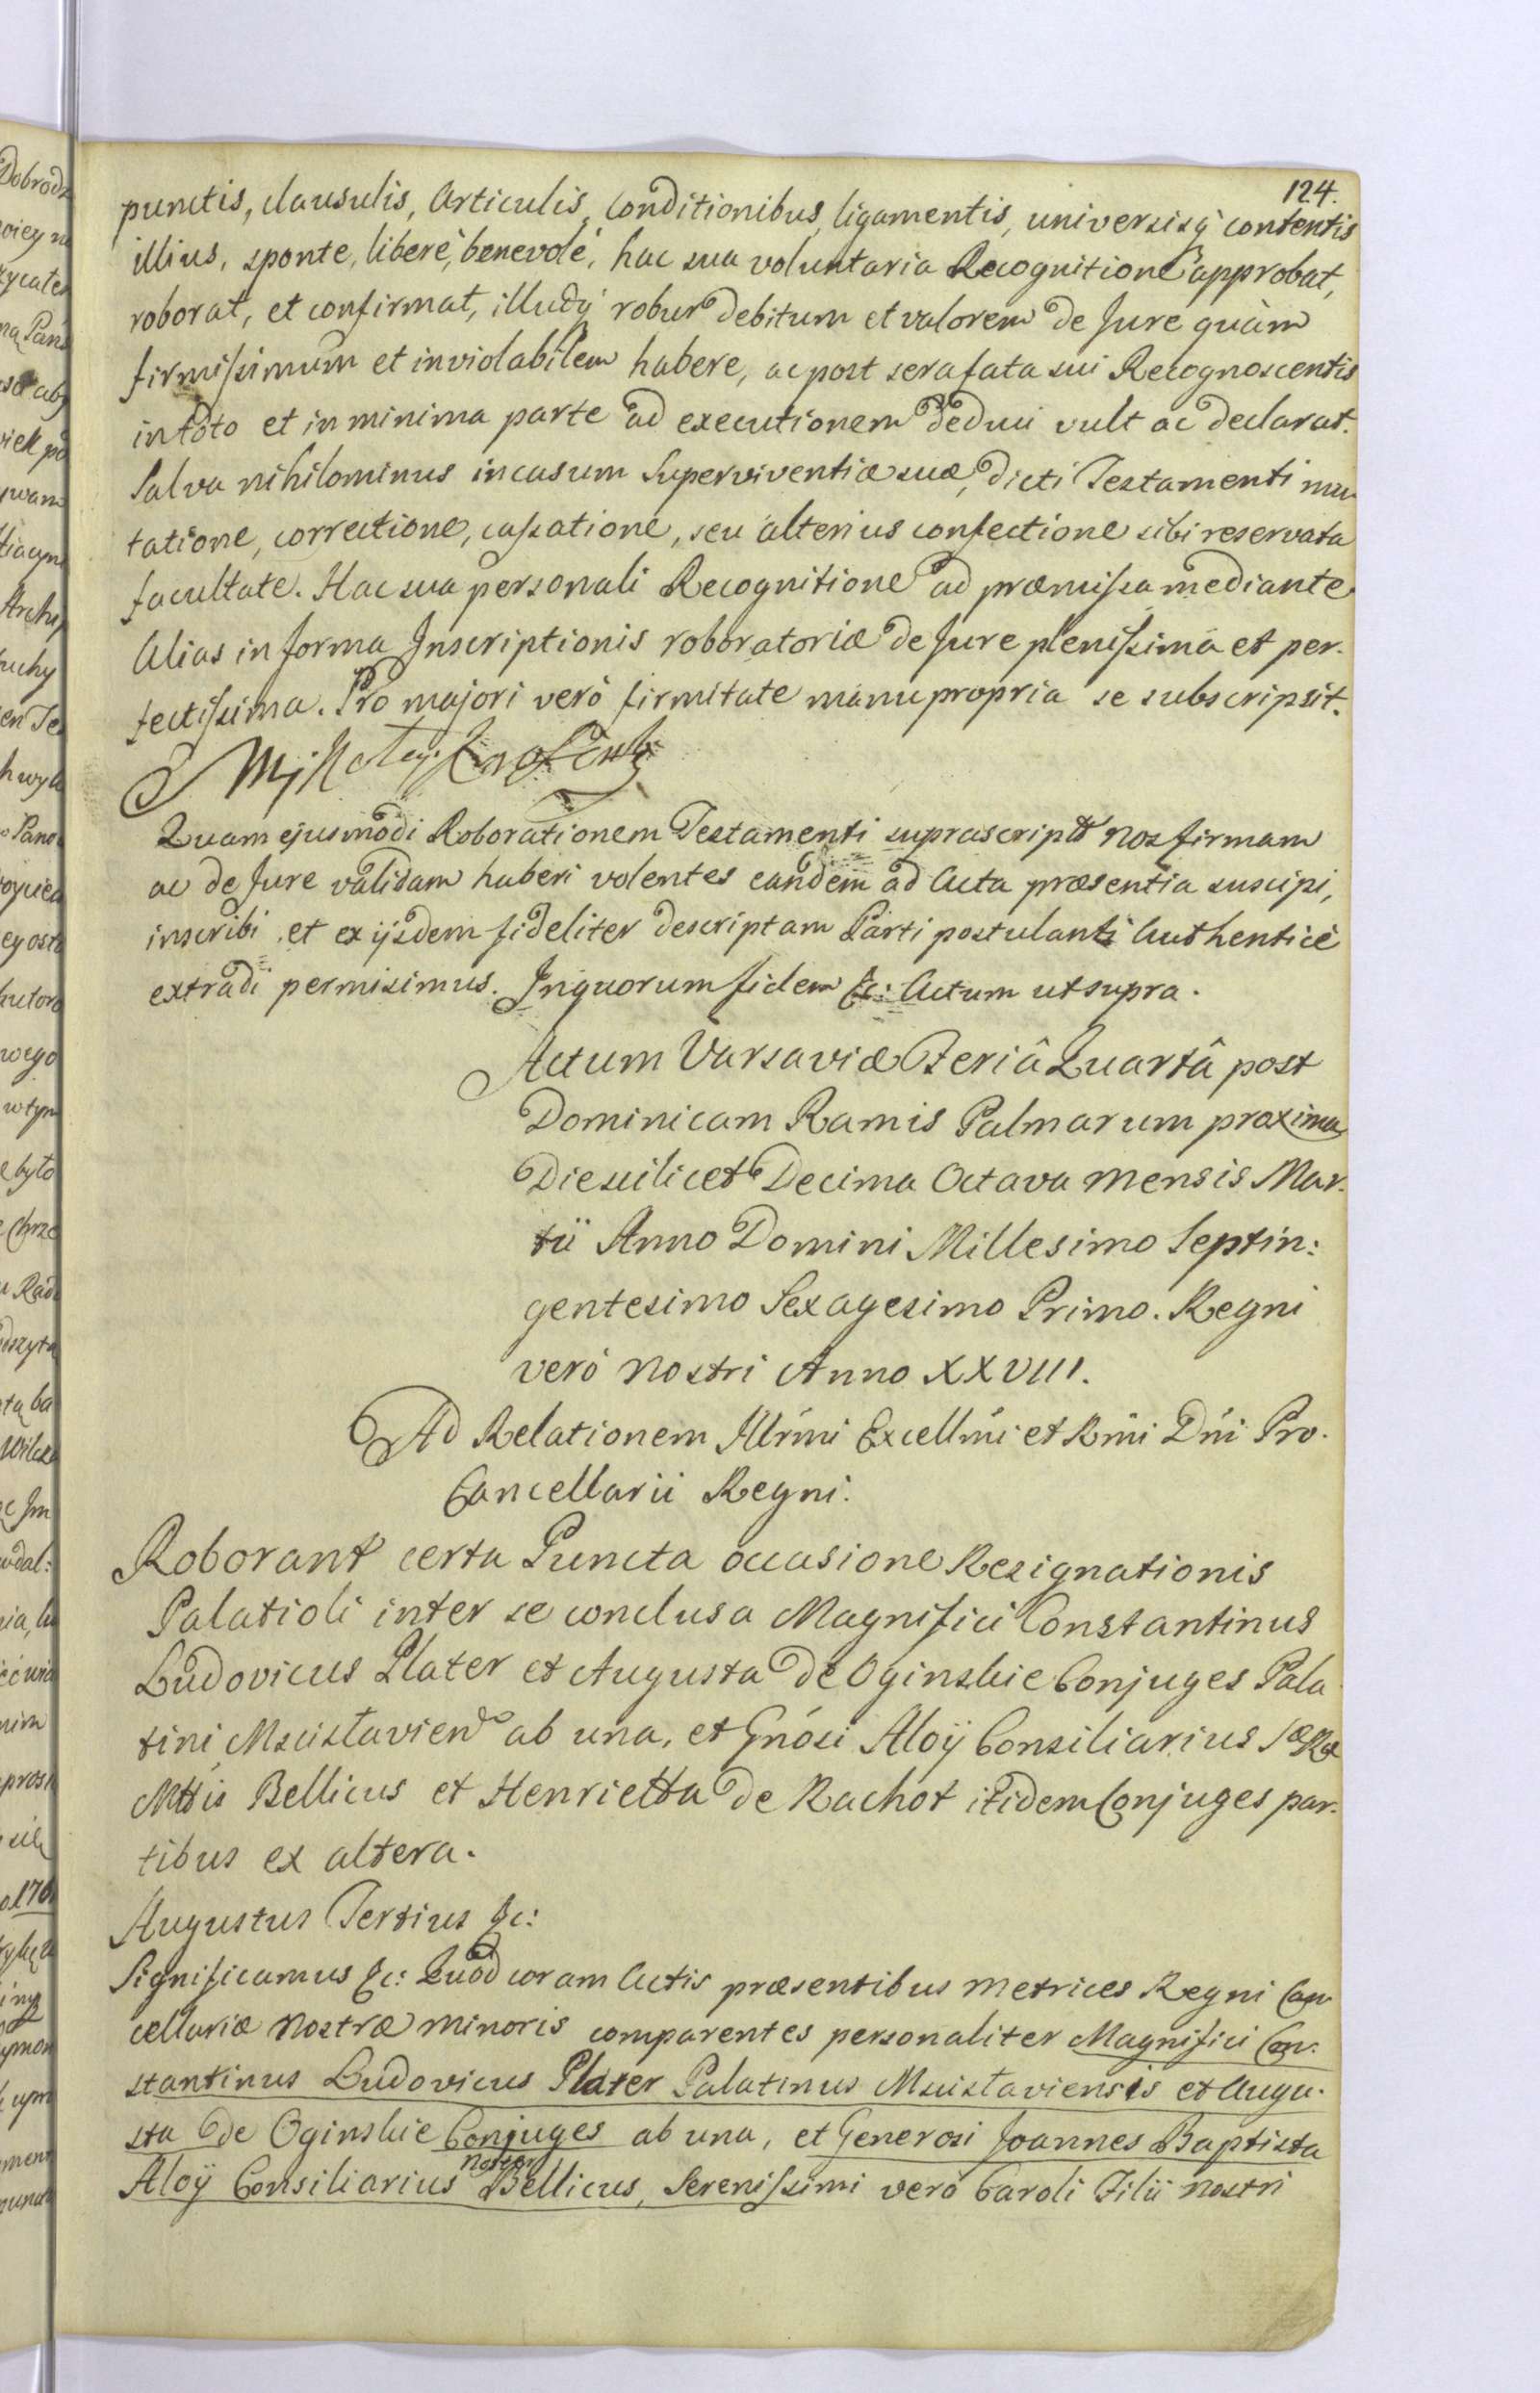 124.
punctis, clausulis, Articulis, Conditionibus, ligamentis, universisq́ contentis
illius, sponte, liberè, benevolè, hac sua voluntaria Recognitione approbat,
roborat, et confirmat, illudq́ robur debitum et valorem de Jure quàm
firmissimum et inviolabilem habere, ac post sera fata sui Recognoscentis
in toto et in minima parte ad executionem deduci vult ac declarat.
Salva nihilominus in casum Superviventiæ suæ, dicti Testamenti mu
tatione, correctione, cassatione, seu alterius confectione sibi reservata
facultate. Hac sua personali Recognitione ad præmissa mediante
Alias in forma Inscriptionis roboratoriæ de Jure plenissima et per-
fectissima. Pro majori verò firmitate manu propria se subscripsit.
Quam ejusmodi Roborationem Testamenti suprascripti Nos firmam
ac de Jure validam haberi volentes eandem ad Acta præsentia suscipi,
inscribi, et ex ijsdem fideliter descriptam Parti postulanti Authenticè
extradi permisimus. In quorum fidem &c: Actum ut supra.
Actum Varsaviæ Feriâ Quartâ post
Dominicam Ramis Palmarum proxima
Die scilicet Decima Octava Mensis Mar-
tii Anno Domini Millesimo Septin:
gentesimo Sexagesimo Primo. Regni
verò Nostri Anno XXVIII.
Ad Relationem Illrm̃i Excellm̃i et Rm̃i Dn̄i Pro-
Cancellarii Regni.
Roborant certa Puncta occasione Resignationis
Palatioli inter se conclusa Magnifici Constantinus
Ludovicus Plater et Augusta de Oginskie Conjuges Pala
tini Mscislavien ab una, et Gn̄osi Aloÿ Consiliarius Sæ Ræ
Mttis Bellicus et Henrietta de Rachot itidem Conjuges par-
tibus ex altera.
Augustus Tertius &c:
Significamus &c: Quod coram Actis præsentibus Metrices Regni Can
cellariæ Nostræ Minoris comparentes personaliter Magnifici Con:
stantinus Ludovicus Plater Palatinus Mscislaviensis et Augu-
sta de Oginskie Conjuges ab una, et Generosi Joannes Baptista
Aloÿ Consiliarius Noster Bellicus, Serenissimi verò Caroli Filii Nostri